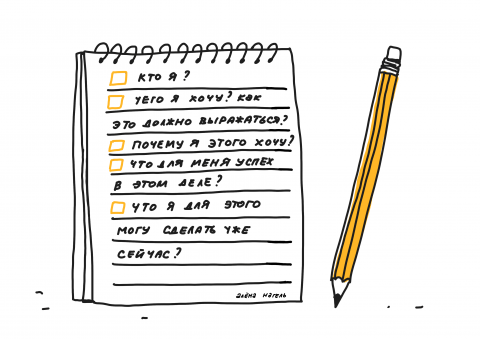 КТО Я?
ЧЕГО Я ХОЧУ? КАК
ЭТО ДОЛЖНО ВЫРАЖАТЬСЯ?
ПОЧЕМУ Я ЭТОГО ХОЧУ?
ЧТО ДЛЯ МЕНЯ УСПЕХ
В ЭТОМ ДЕЛЕ?
ЧТО Я ДЛЯ ЭТОГО
МОГУ СДЕЛАТЬ УЖЕ
СЕЙЧАС?
АЛЁНА НАГЕЛЬ